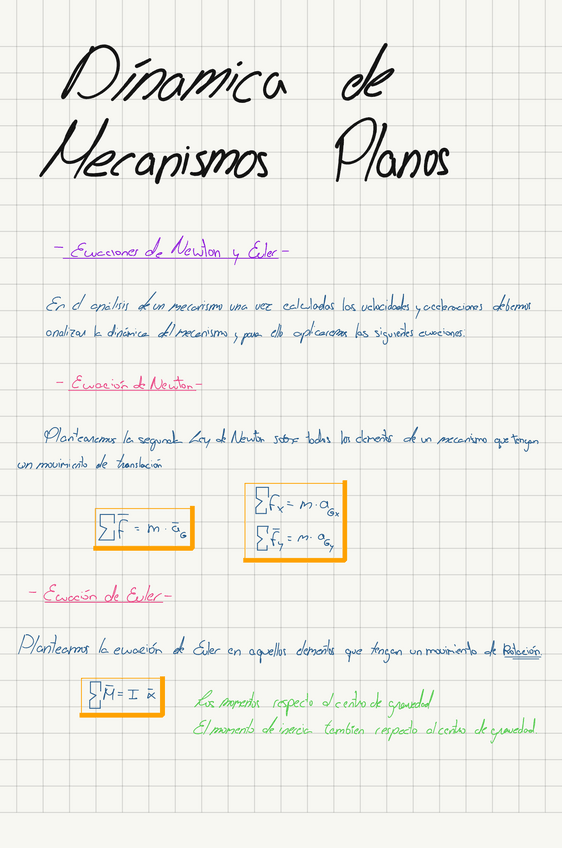 Dínamica de
Mecanismos Planos
- Ecuaciones de Newton y Euler -
En el análisis de un mecanismo una vez calculadas las velocidades y aceleraciones debemos
analizar la dinámica del mecanismo y para ello aplicaremos las siguientes ecuaciones.
- Ecuación de Newton -
Plantearemos la segunda Ley de Newton sobre todos los elementos de un mecanismo que tengan
un movimiento de translación
∑F̄ = m · ā_G
∑F_x = m · a_Gx
∑F̄_y = m · a_Gy
- Ecuación de Euler -
Planteamos la ecuación de Euler en aquellos elementos que tengan un movimiento de Rotación
∑M̄ = I ᾱ
Los momentos respecto al centro de gravedad
El momento de inercia tambien respecto al centro de gravedad.